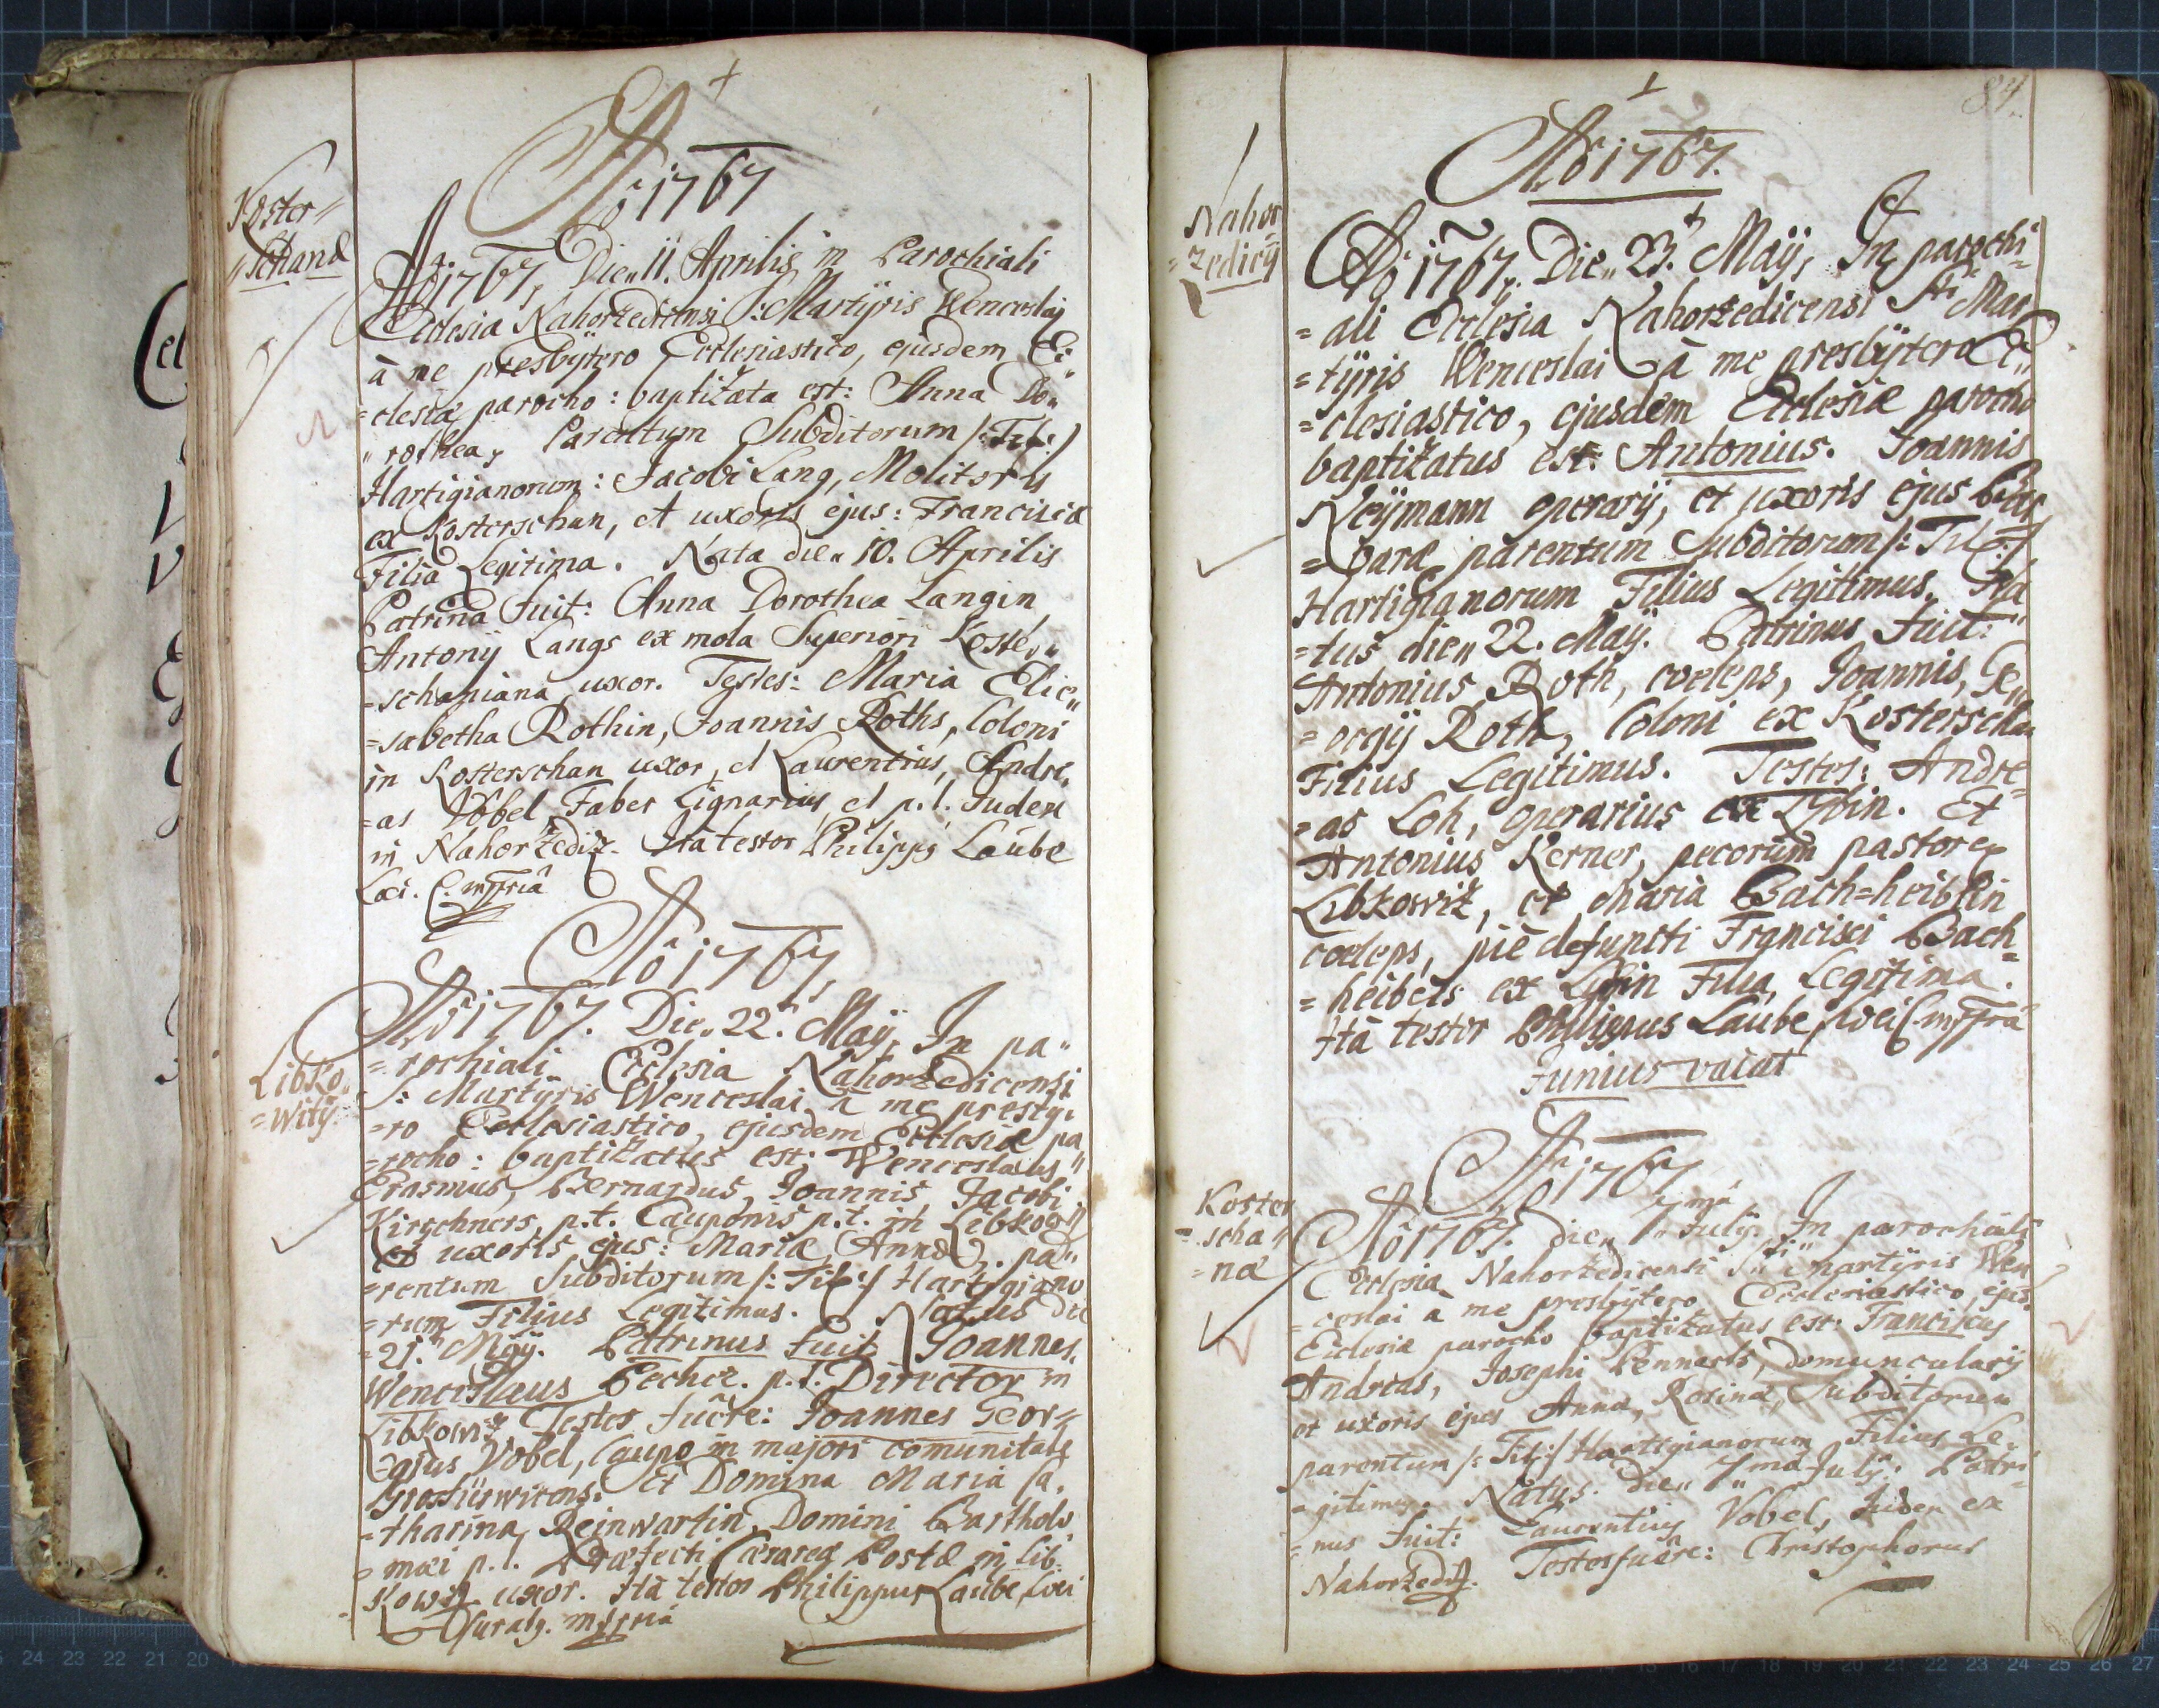 Koster„
„schana
Aô 1767
Aô 1767, Die 11. Aprilis in Parochiali
Ecclesia Nahoržedicensi S: Martÿris Wenceslai
à me presbÿtero Ecclesiastico, ejusdem Ec„
=clesiæ parocho: baptižata est: Anna Do„
„rothea, Parentum Subditorum /:Tit:/
Hartigianorum: Jacobi Lang, Molitoris
ex Kosterschan, et uxoris ejus: Franciscæ
Filia Legitima. Nata die 10. Aprilis
Patrina fuit: Anna Dorothea Langin
Antonÿ Langs ex mola Superiori Koster„
=schaniana uxor. Testes: Maria Elie„
=sabetha Rothin, Joannis Roths, Coloni
in Kosterschan uxor, et Laurentius, Andre„
=as Vobel Faber Lignarius, et p. t. Judex
in Nahoržediz. Ità testor Philippus Laube
Loci. C. mppriâ
Aô 1767,
Libko„
=witÿ
Aô 1767. Die 22. Maÿ, In pa„
=rochiali Ecclesia Nahoržedicensi
S: Martÿris Wenceslai à me presbÿ„
=ro Ecclesiastico, ejusdem Ecclesiæ pa
=rocho: baptižatus est: Wenceslaus„
Erasmus, Bernardus, Joannis Jacobi
Kirschners, p. t. Cauponis p. t. in Libkowiz
et uxoris ejus: Mariæ Annæ, pa„
=rentum Subditorum /: Tit:/ Hartigiano
=rum Filius Legitimus. Natus die
=21. Maÿ. Patrinus fuit Joannes,
Wenceslaus Pecher. p. t. Director in
Libkowiz Testes fuêre: Joannes Geor„
Vobel, Caupo in majori comunitate
Et Domina Maria Ca„
=tharina, Reinwartin, Domini Bartholo
=mæi p. t. Præfecti Cæsareæ Postæ in Lib„
kowiz uxor. Ità testor Philippus Laube, Loci
Curatg. mppriâ
84.
Nahor
=žedicÿ
Aô 1767.
Aô 1767. Die 23. Maÿ, In parochi„
=ali Ecclesia Nahoržedicensi Sti Mar
=tÿris Wenceslai à me presbÿtero Ec„
=clesiastico, ejusdem Ecclesiæ parocho
baptižatus est: Antonius. Joannis
Neÿmann operarÿ, et uxoris ejus Bar
=baræ parentum Subditorum /: Tit:/
Hartigianorum Filius Legitimus. Na
=tus die 22. Maÿ. Patrinus fuit:
Antonius Roth, cœleps, Joannis, Ge„
=orgÿ Roth, Coloni ex Kosterschan
Filius Legitimus. Testes: Andre„
=as Loh, operarius ex Libin. Et
Antonius Kerner, pecorum pastor ex
Libkowiž, et Maria Bach=heiblin
cœleps, piè defuncti Francisci Bach„
=heibels ex Libin Filia Legitima.
Ità testor Philippus Laube, Loci C. mppriâ
Junius vacat
Aô 1767
Koster
=scha„
=na
Aô 1767. die 7mâ Julÿ. In parochiali
Ecclesia Nahoržedicensi Sti martÿris Wen
=ceslai à me presbÿtero Ecclesiastico, ejus.
Ecclesiæ parocho baptižatus est: Franciscus
Andreas, Josephi Pennerts, domuncularÿ
et uxoris ejus Annæ, Rosinæ, Subditorum
parentum /: Tit:/ Hartigianorum Filius Le„
=gitimus. Natus. die 7mâ Julÿ: Patri„
=nus fuit: Laurentius Vobel, Judex ex
Nahoržediz. Testes fuêre: Christophorus